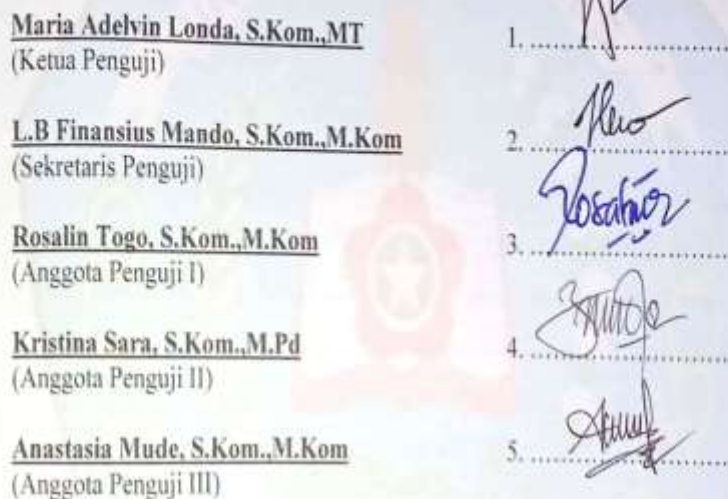 Maria Adelvin Londa, S.Kom.,MT 1. ....................
(Ketua Penguji)
L.B Finansius Mando, S.Kom.,M.Kom 2. ....................
(Sekretaris Penguji)
Rosalin Togo, S.Kom.,M.Kom 3. ....................
(Anggota Penguji I)
Kristina Sara, S.Kom.,M.Pd 4. ....................
(Anggota Penguji II)
Anastasia Mude, S.Kom.,M.Kom 5. ....................
(Anggota Penguji III)